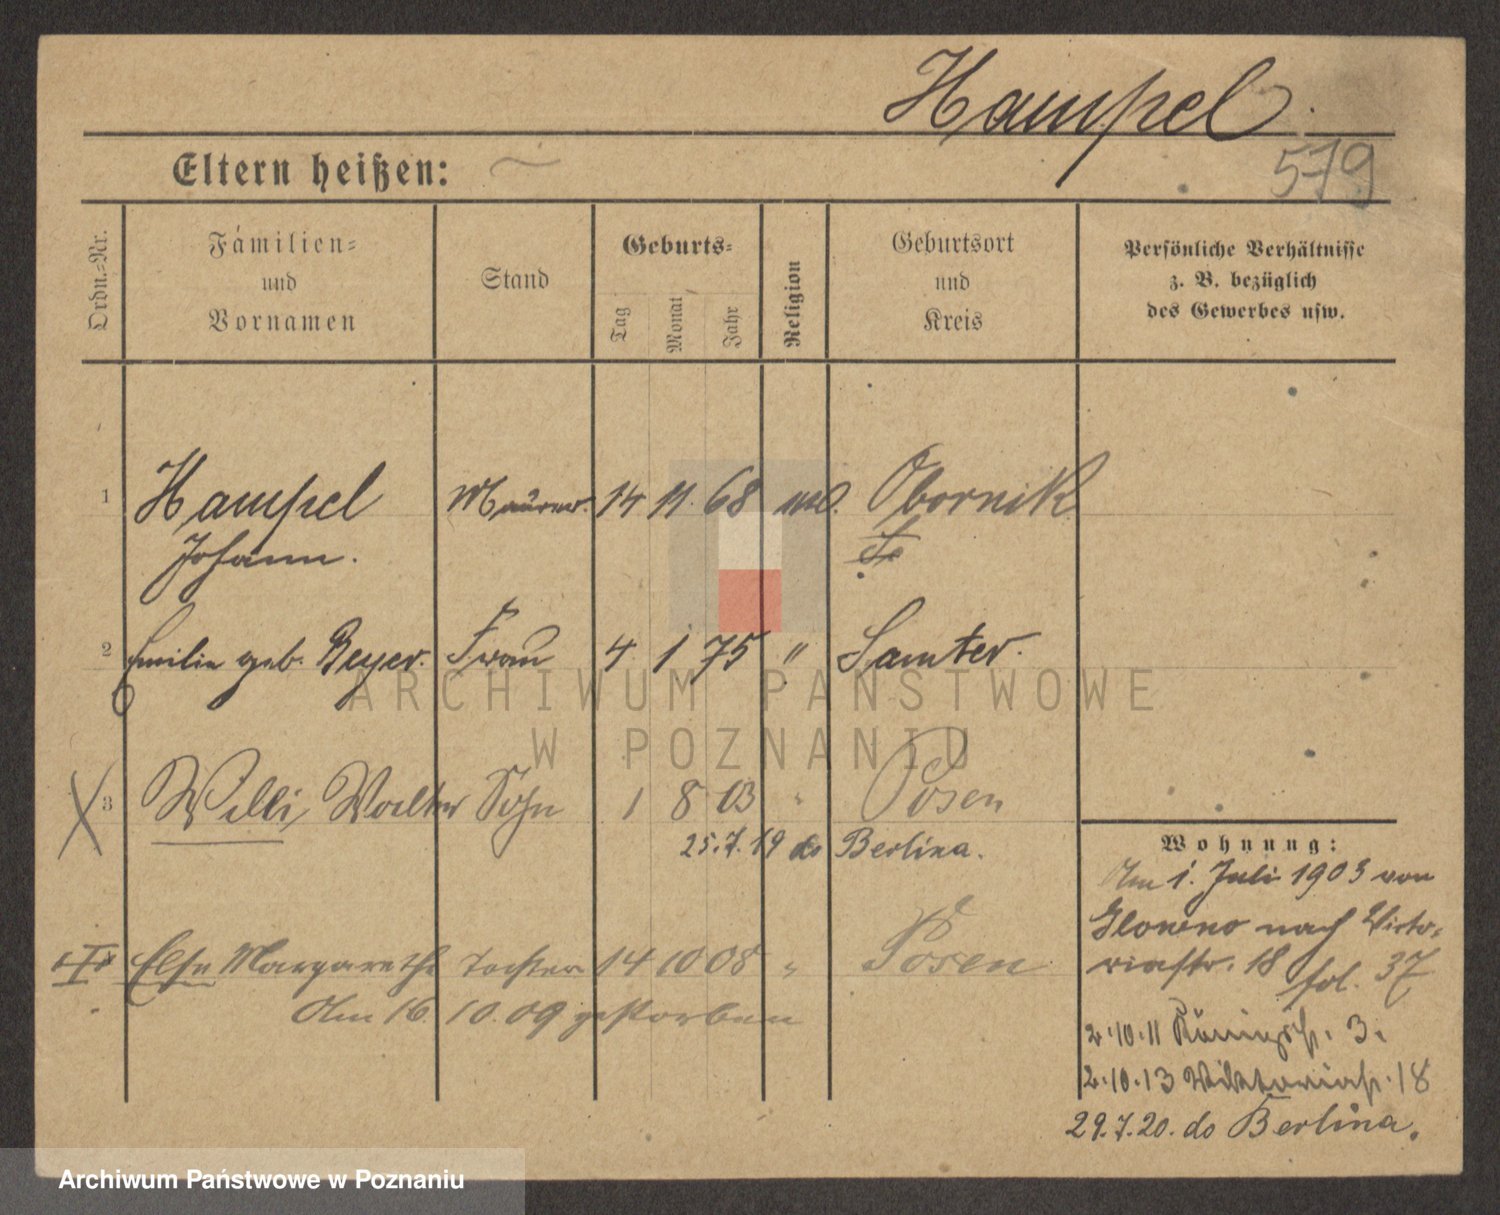 Hampel
579
Eltern heißen:
Ordn.-Nr.
Familien-
und
Vornamen
Stand
Geburts-
Tag
Monat
Jahr
Religion
Geburtsort
und
Kreis
Persönliche Verhältnisse
z. B. bezüglich
des Gewerbes usw.
1 Hampel Maurer 14 11. 68 Obornik
Johann.
2 Emilie geb. Beyer. Frau 4 1 75 " Samter.
3 Willi, Walter Sohn 1 8 03 " Posen
25.7.19 do Berlina.
Else Margarethe Tochter 14 10 08 " Posen
Am 16. 10. 09 gestorben
Wohnung:
Am 1. Juli 1903 von
Glowno nach Victo-
riastr. 18 fol. 37
2.10.11 Königstr. 3.
2.10.13 Viktoriastr. 18
29.7.20. do Berlina.
ARCHIWUM PAŃSTWOWE
W POZNANIU
Archiwum Państwowe w Poznaniu